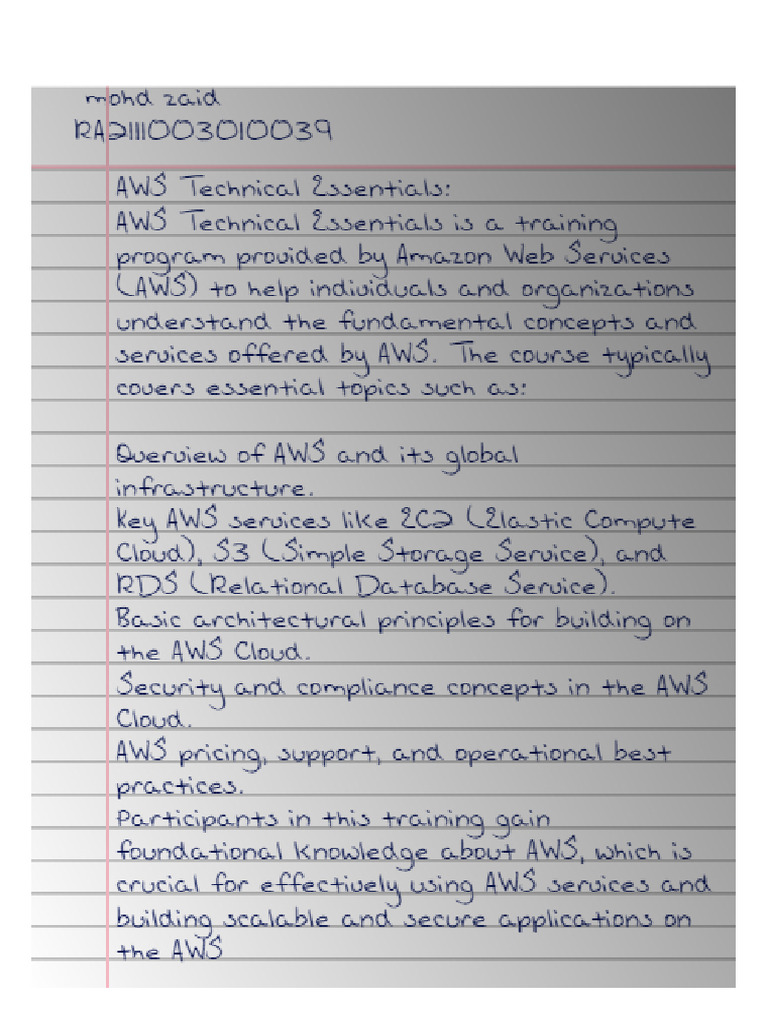 mohd zaid
RA2111003010039
AWS Technical Essentials:
AWS Technical Essentials is a training
program provided by Amazon Web Services
(AWS) to help individuals and organizations
understand the fundamental concepts and
services offered by AWS. The course typically
covers essential topics such as:
Overview of AWS and its global
infrastructure.
Key AWS services like EC2 (Elastic Compute
Cloud), S3 (Simple Storage Service), and
RDS (Relational Database Service).
Basic architectural principles for building on
the AWS Cloud.
Security and compliance concepts in the AWS
Cloud.
AWS pricing, support, and operational best
practices.
Participants in this training gain
foundational knowledge about AWS, which is
crucial for effectively using AWS services and
building scalable and secure applications on
the AWS